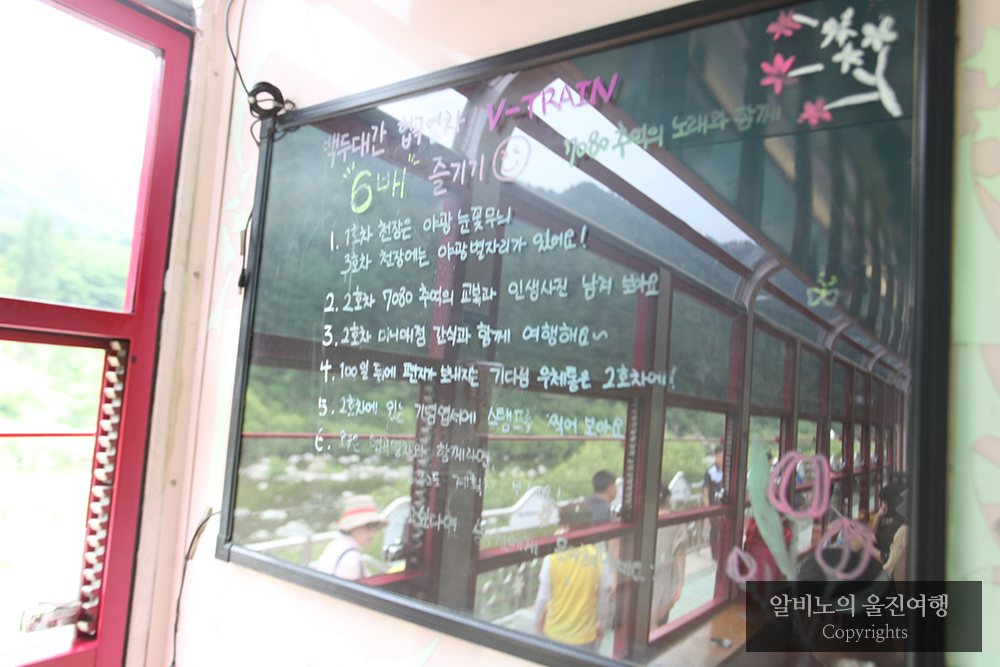 백두대간 협곡열차 V-TRAIN
7080 추억의 노래와 함께
6배 즐기기
1. 1호차 천장은 야광 눈꽃무늬
3호차 천장에는 야광별자리가 있어요!
2. 2호차 7080 추억의 교복과 인생사진 남겨 보아요
3. 2호차 미니매점 간식과 함께 여행해요~
4. 100일 뒤에 편지가 보내지는 기다림 우체통은 2호차에!
5. 2호차에 있는 기념엽서에 스탬프를 찍어 보아요
6. 협곡열차와 함께라면
알비노의 울진여행
Copyrights